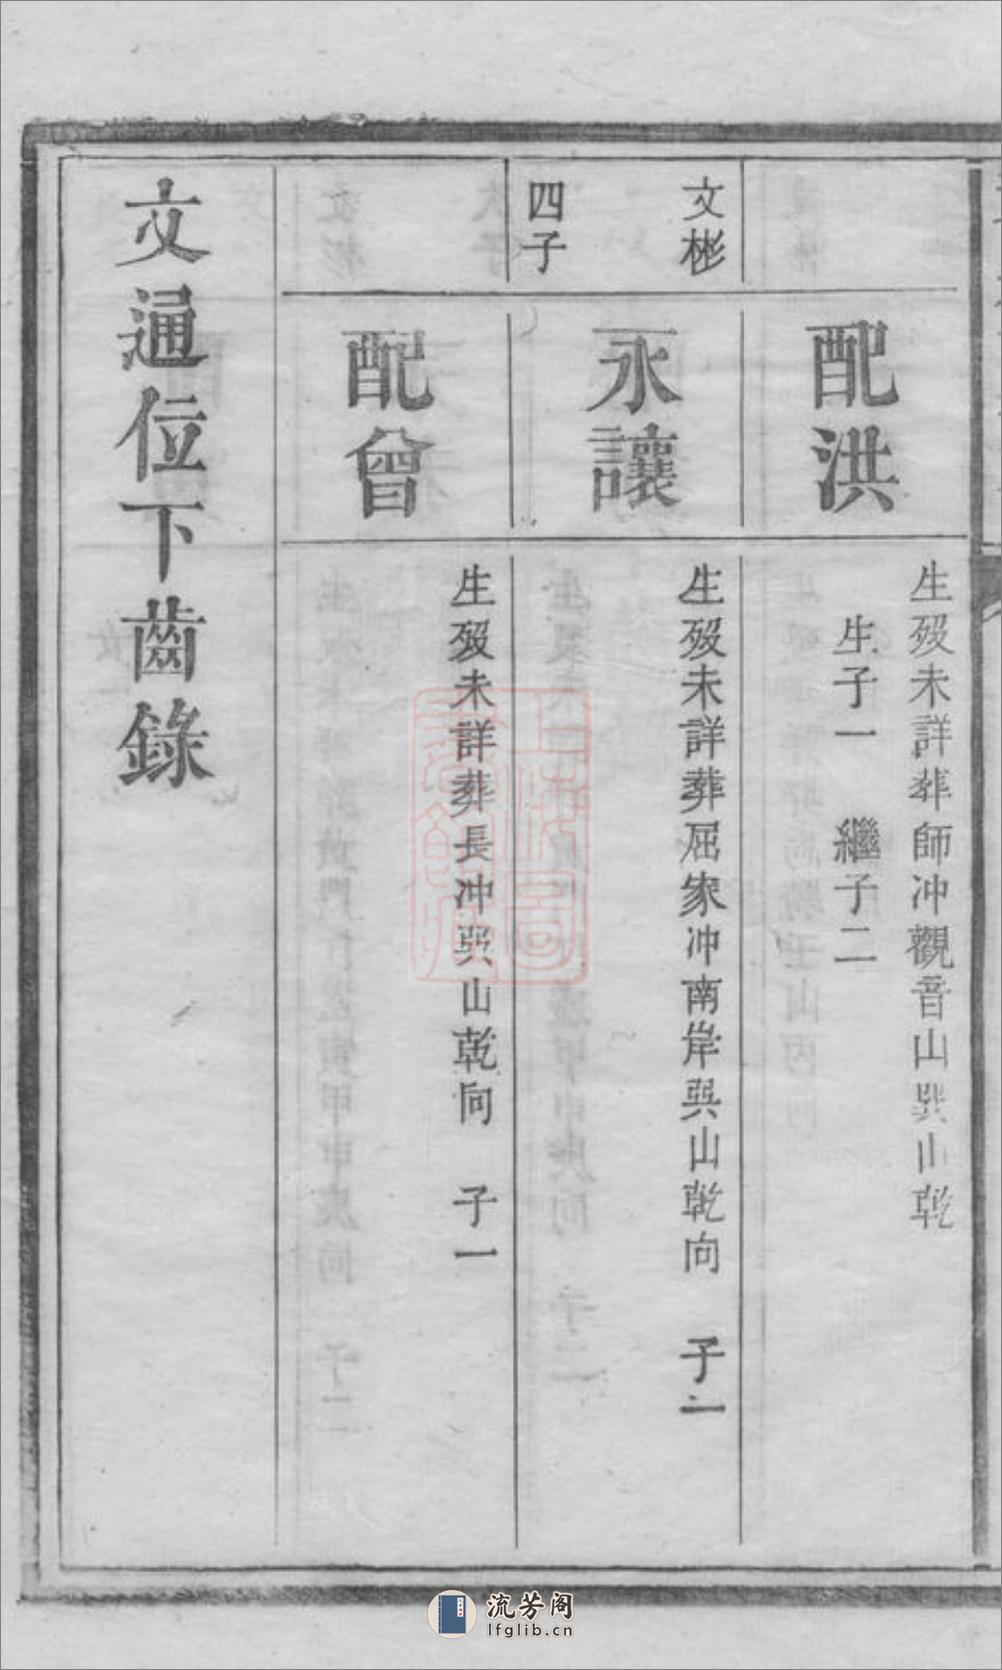 配洪
生歿未詳葬師冲觀音山巽山乾
生子一 繼子二
文彬
四子
永讓
生歿未詳葬屈家冲南岸巽山乾向 子一
配曾
生歿未詳葬長冲巽山乾向 子一
文通位下齒錄
上海圖
書館藏
流芳阁
lfglib.cn